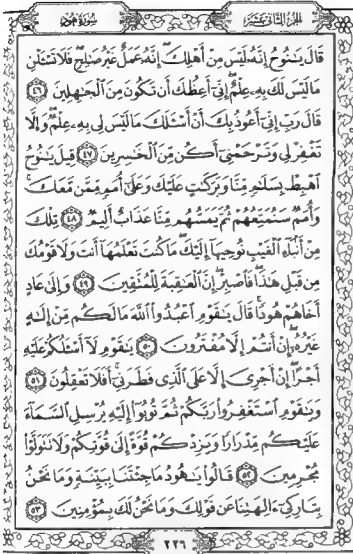 الجزء الثاني عشر
سورة هود
قَالَ يَٰنُوحُ إِنَّهُۥ لَيْسَ مِنْ أَهْلِكَۖ إِنَّهُۥ عَمَلٌ غَيْرُ صَٰلِحٖۖ فَلَا تَسْـَٔلْنِ
مَا لَيْسَ لَكَ بِهِۦ عِلْمٌۖ إِنِّيٓ أَعِظُكَ أَن تَكُونَ مِنَ ٱلْجَٰهِلِينَ ٤٦
قَالَ رَبِّ إِنِّيٓ أَعُوذُ بِكَ أَنْ أَسْـَٔلَكَ مَا لَيْسَ لِي بِهِۦ عِلْمٌۖ وَإِلَّا
تَغْفِرْ لِي وَتَرْحَمْنِيٓ أَكُن مِّنَ ٱلْخَٰسِرِينَ ٤٧ قِيلَ يَٰنُوحُ
ٱهْبِطْ بِسَلَٰمٖ مِّنَّا وَبَرَكَٰتٍ عَلَيْكَ وَعَلَىٰٓ أُمَمٖ مِّمَّن مَّعَكَۚ
وَأُمَمٞ سَنُمَتِّعُهُمْ ثُمَّ يَمَسُّهُم مِّنَّا عَذَابٌ أَلِيمٞ ٤٨ تِلْكَ
مِنْ أَنۢبَآءِ ٱلْغَيْبِ نُوحِيهَآ إِلَيْكَۖ مَا كُنتَ تَعْلَمُهَآ أَنتَ وَلَا قَوْمُكَ
مِن قَبْلِ هَٰذَاۖ فَٱصْبِرْۖ إِنَّ ٱلْعَٰقِبَةَ لِلْمُتَّقِينَ ٤٩ وَإِلَىٰ عَادٍ
أَخَاهُمْ هُودٗاۚ قَالَ يَٰقَوْمِ ٱعْبُدُوا۟ ٱللَّهَ مَا لَكُم مِّنْ إِلَٰهٍ
غَيْرُهُۥٓۖ إِنْ أَنتُمْ إِلَّا مُفْتَرُونَ ٥٠ يَٰقَوْمِ لَآ أَسْـَٔلُكُمْ عَلَيْهِ
أَجْرًاۖ إِنْ أَجْرِيَ إِلَّا عَلَى ٱلَّذِي فَطَرَنِيٓۚ أَفَلَا تَعْقِلُونَ ٥١
وَيَٰقَوْمِ ٱسْتَغْفِرُوا۟ رَبَّكُمْ ثُمَّ تُوبُوٓا۟ إِلَيْهِ يُرْسِلِ ٱلسَّمَآءَ
عَلَيْكُم مِّدْرَارٗا وَيَزِدْكُمْ قُوَّةً إِلَىٰ قُوَّتِكُمْ وَلَا تَتَوَلَّوْا۟
مُجْرِمِينَ ٥٢ قَالُوا۟ يَٰهُودُ مَا جِئْتَنَا بِبَيِّنَةٖ وَمَا نَحْنُ
بِتَارِكِيٓ ءَالِهَتِنَا عَن قَوْلِكَ وَمَا نَحْنُ لَكَ بِمُؤْمِنِينَ ٥٣
٢٢٦